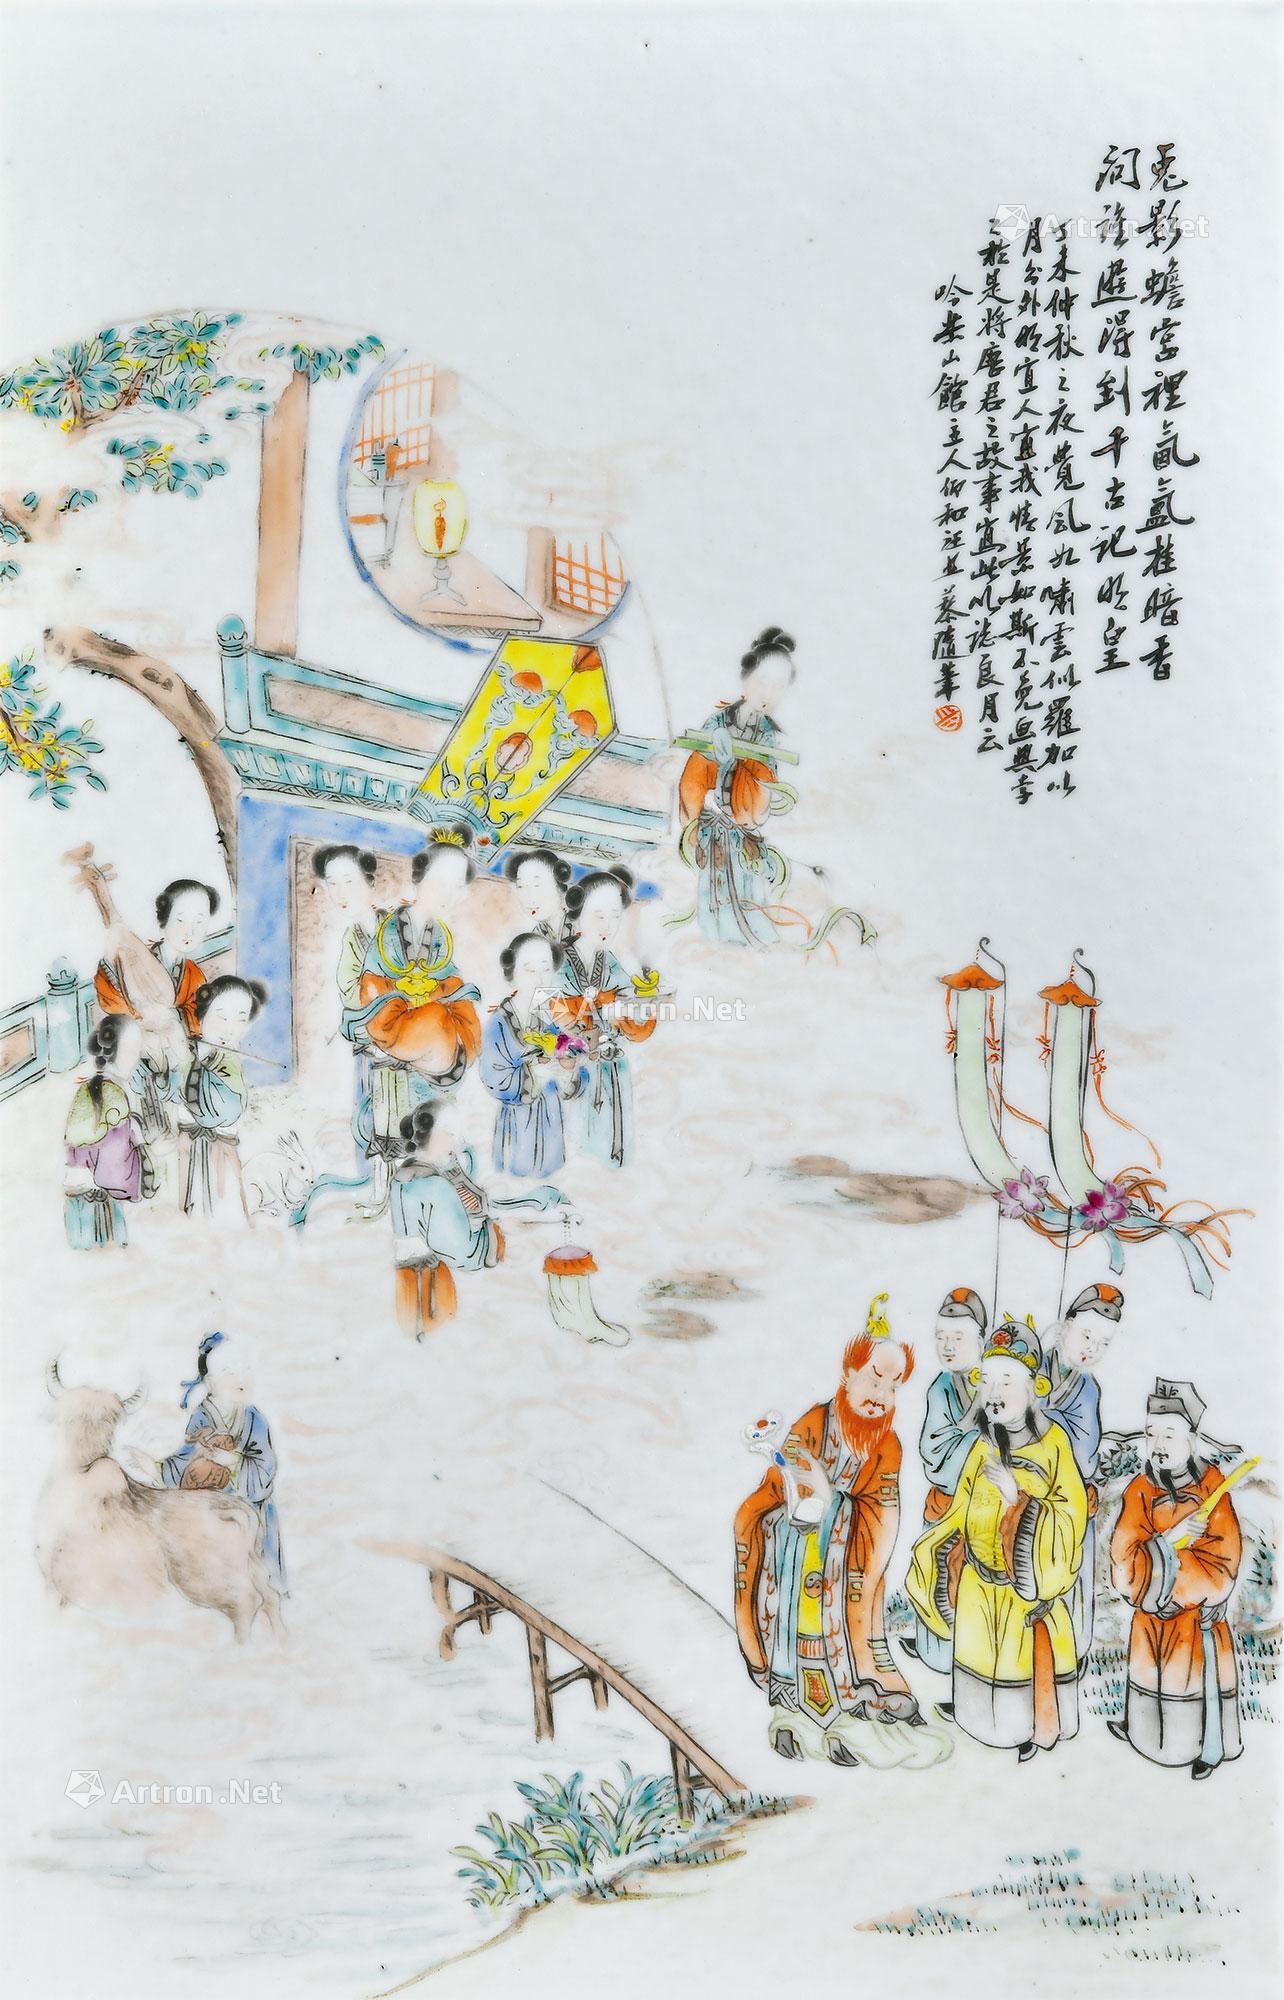 兎影蟾宮裡氤氳桂暗香
問誰遊得到千古記明皇
丁未仲秋之夜覺風如嘯雲似羅加以
月分外明宜人宜我情景如斯不覺逸興幸
之於是將唐君之故事寫此以誌良月云
吟梁山館主人仰和汪
Artron.Net
Artron.Net
Artron.Net